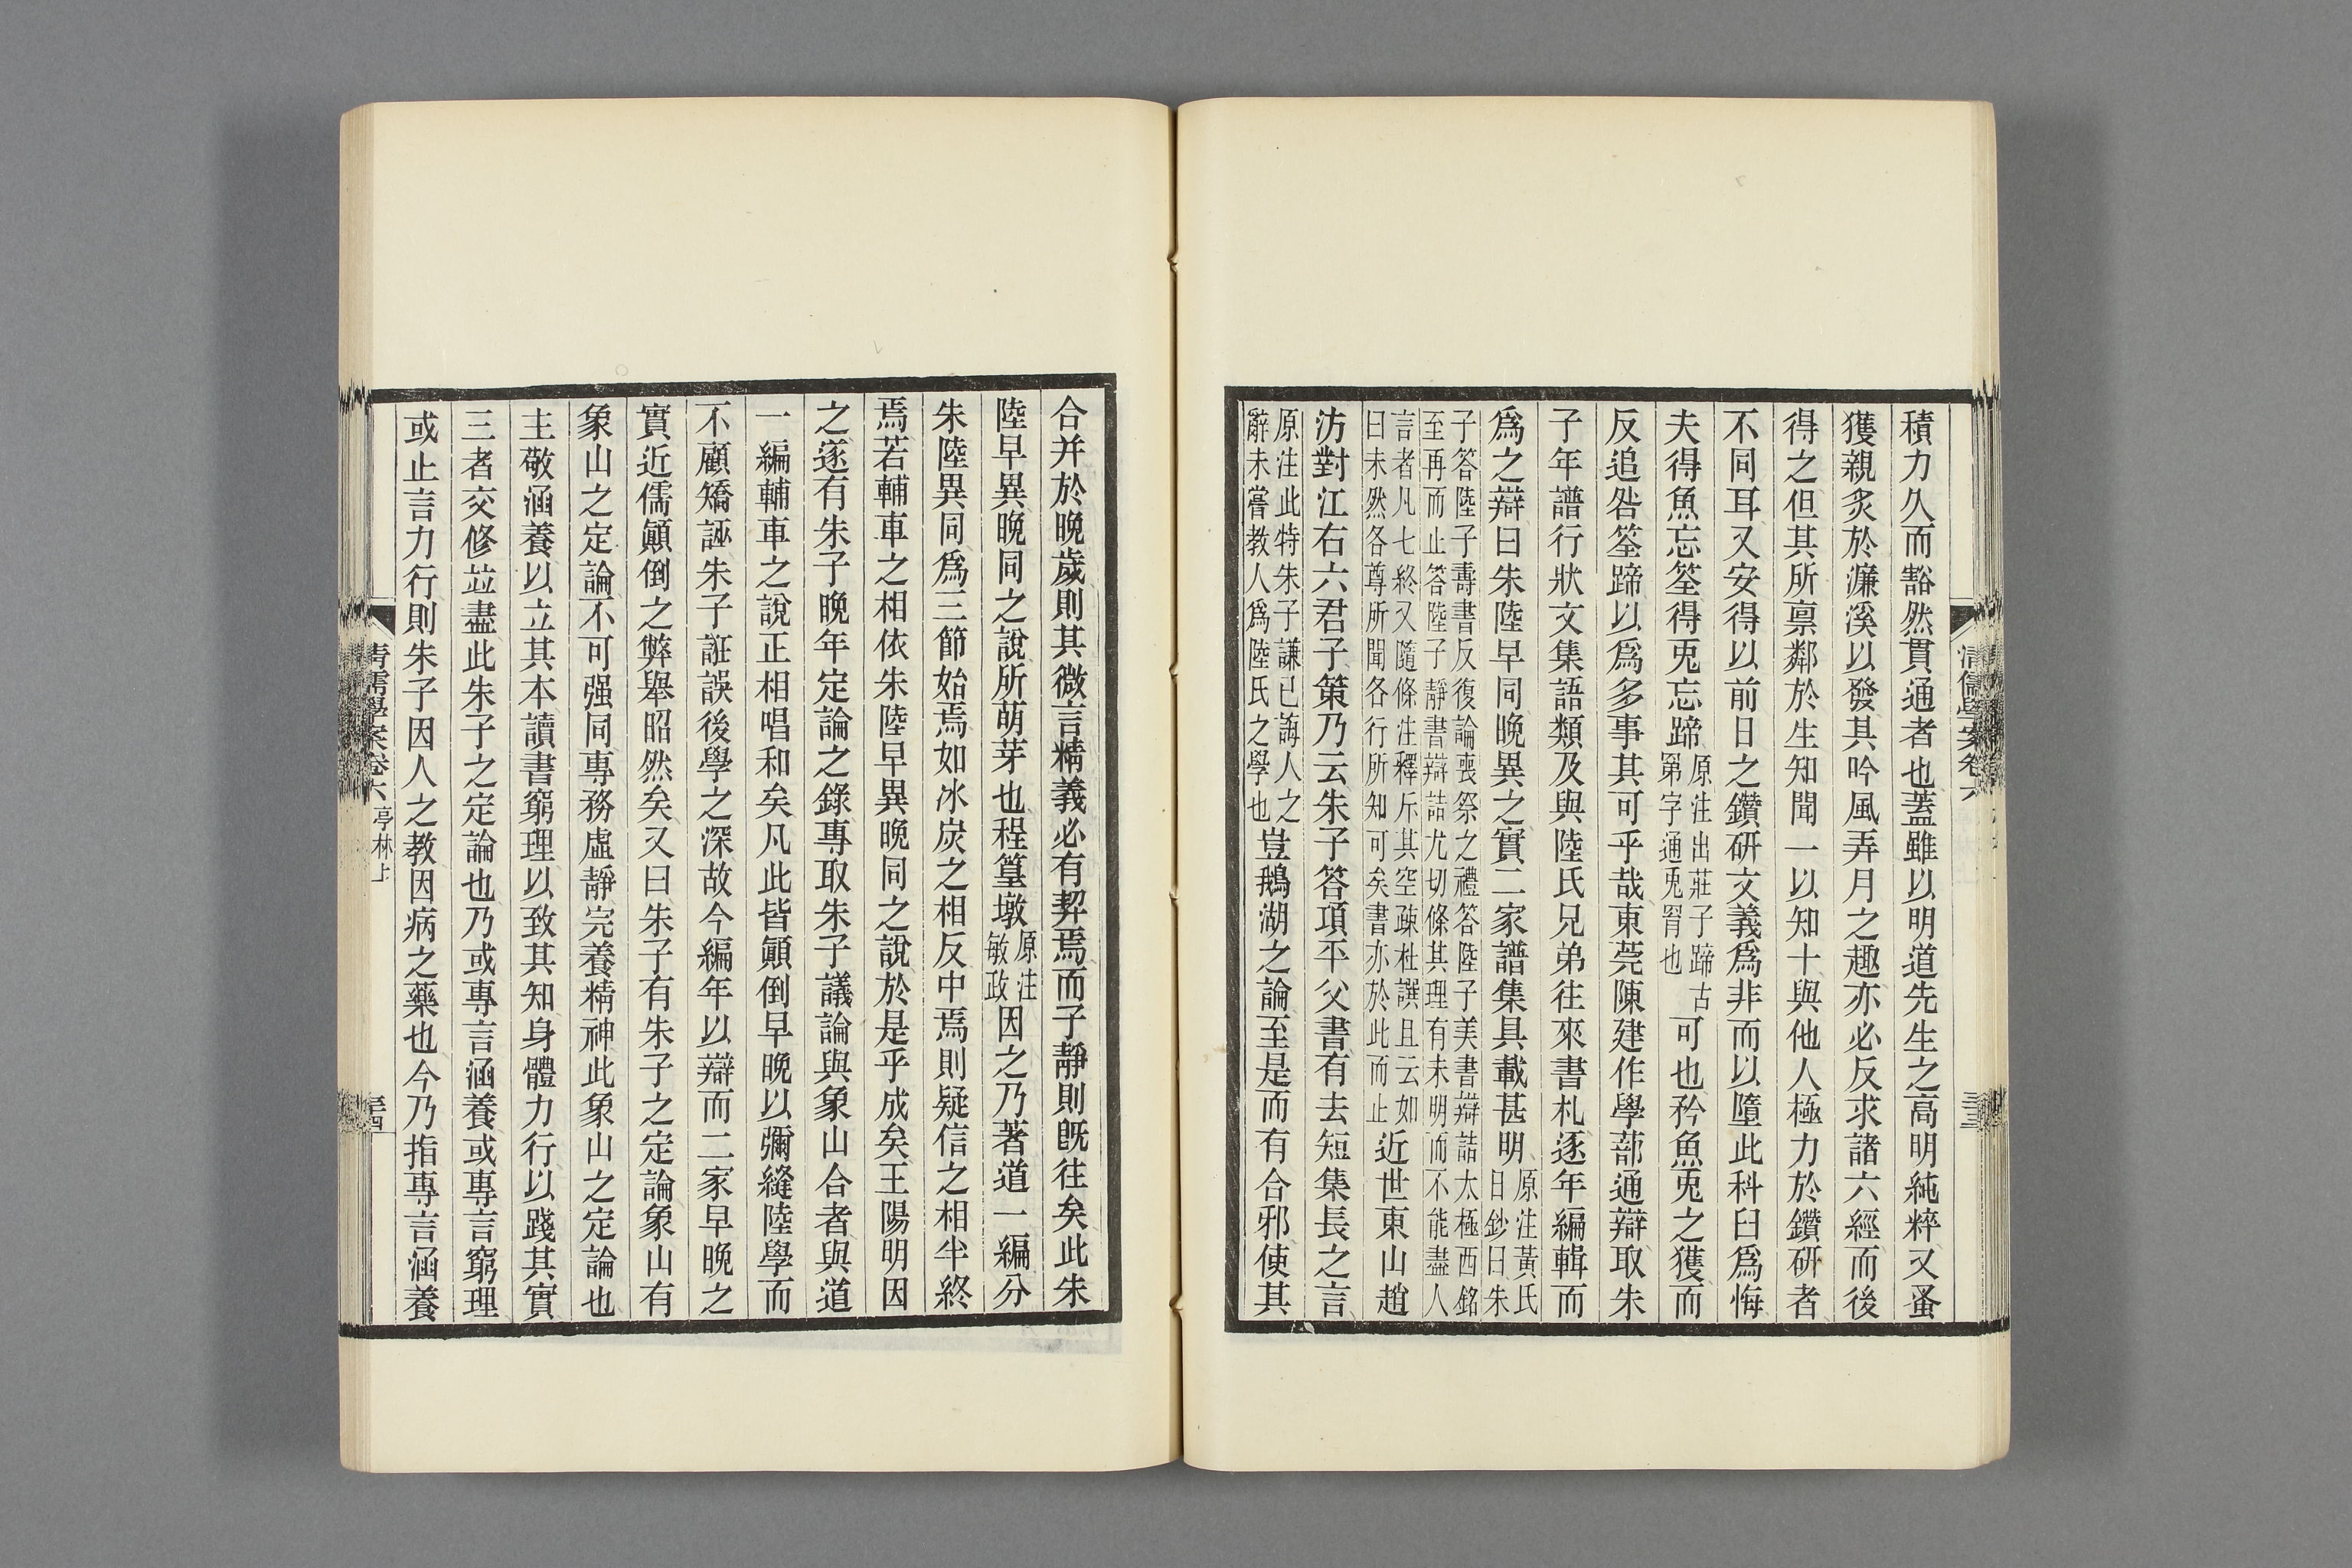 積力久而豁然貫通者也蓋雖以明道先生之高明純粹又蚤
獲親炙於濂溪以發其吟風弄月之趣亦必反求諸六經而後
得之但其所禀鄰於生知聞一以知十與他人極力於鑽研者
不同耳又安得以前日之鑽研文義爲非而以墮此科臼爲悔
夫得魚忘筌得兎忘蹄原注出莊子蹄古第字通兎罥也可也矜魚兎之獲而
反追咎筌蹄以爲多事其可乎哉東莞陳建作學蔀通辯取朱
子年譜行狀文集語類及與陸氏兄弟往來書札逐年編輯而
爲之辯曰朱陸早同晚異之實二家譜集具載甚明原注黃氏日鈔曰朱
子答陸子壽書反復論喪祭之禮答陸子美書辯詰太極西銘
至再而止答陸子靜書辯詰尤切條其理有未明而不能盡人
言者凡七終又隨條注釋斥其空疎杜譔且云如
曰未然各尊所聞各行所知可矣書亦於此而止近世東山趙
汸對江右六君子策乃云朱子答項平父書有去短集長之言
原注此特朱子謙已誨人之辭未嘗教人爲陸氏之學也豈鵝湖之論至是而有合邪使其
清儒學案卷六
三三
合并於晚歲則其微言精義必有契焉而子靜則旣往矣此朱
陸早異晚同之說所萌芽也程篁墩原注敏政因之乃著道一編分
朱陸異同爲三節始焉如冰炭之相反中焉則疑信之相半終
焉若輔車之相依朱陸早異晚同之說於是乎成矣王陽明因
之遂有朱子晚年定論之錄專取朱子議論與象山合者與道
一編輔車之說正相唱和矣凡此皆顚倒早晚以彌縫陸學而
不顧矯誣朱子誑誤後學之深故今編年以辯而二家早晚之
實近儒顚倒之弊舉昭然矣又曰朱子有朱子之定論象山有
象山之定論不可强同專務虛靜完養精神此象山之定論也
主敬涵養以立其本讀書窮理以致其知身體力行以踐其實
三者交修並盡此朱子之定論也乃或專言涵養或專言窮理
或止言力行則朱子因人之教因病之藥也今乃指專言涵養
清儒學案卷六 亭林上
三四